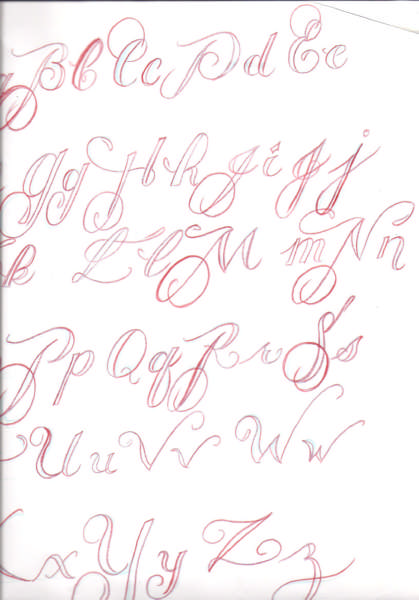 B b C c D d E e
g g H h I i J j
k L l M m N n
P p Q q R r S s
U u V v W w
x Y y Z z